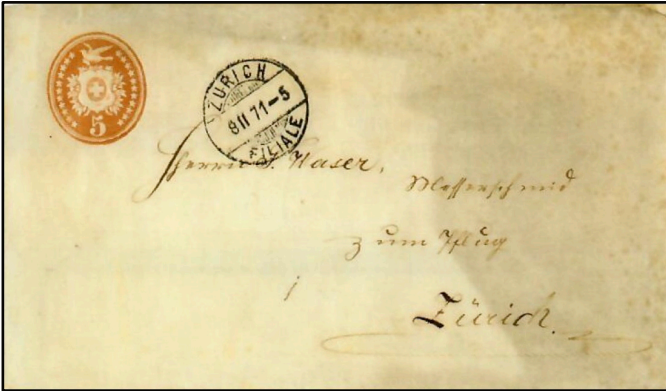 5
ZÜRICH
8 II 71-5
FILIALE
Herrn J. Waser,
Messerschmied
zum Pflug
Zürich.